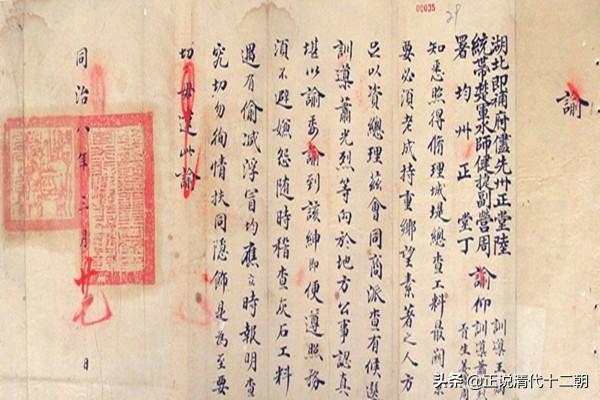 00035
諭
湖北即補府儘先卅正堂陸
統帶楚軍水師健捷副營周
署均卅正堂丁
諭仰
訓導王
訓導蕭
貢生
知悉照得脩理城堤總查工料最關緊
要必須老成持重鄉望素著之人方
足以資總理茲會同商派查有候選
訓導蕭光烈等向於地方公事認真
堪以諭委諭到該紳即便遵照務
須不避嫌怨随時稽查灰石工料
遇有偷减浮冒均應立時報明查
究切勿徇情扶同隱飾是為至要
切毋違此諭
同治八年三月 日
头条 @正说清代十二朝